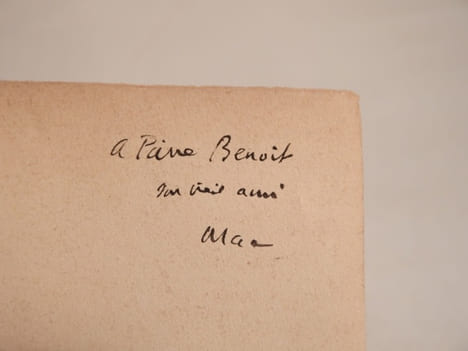 A Pierre Benoit
son vieil ami
Mac